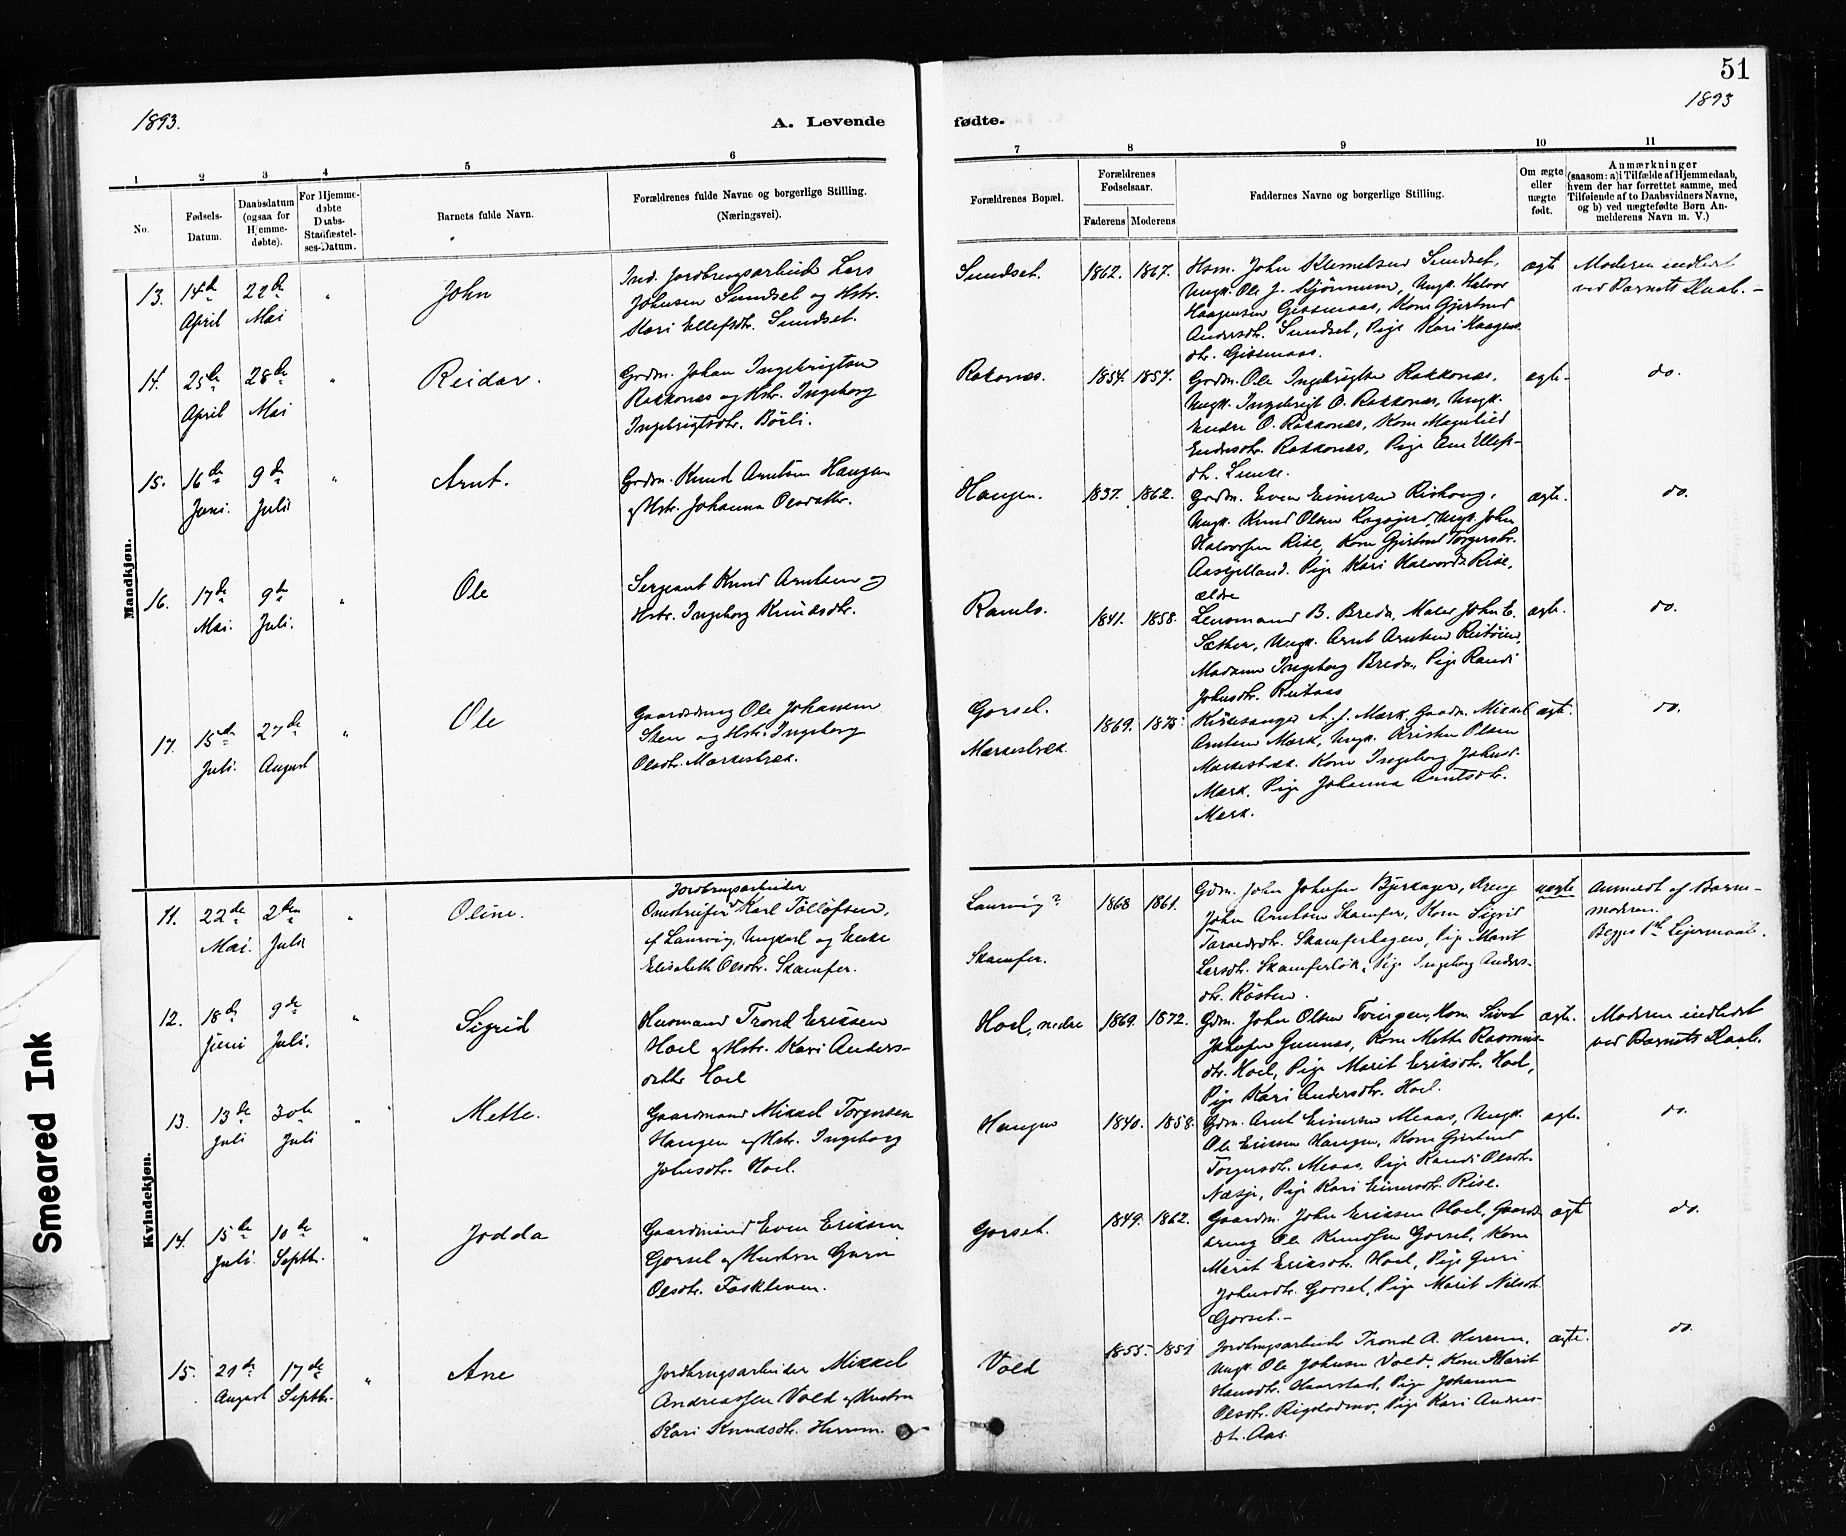 51
1893.
1893
A. Levende
fødte.
1 2 3 4 5 6
7 8 9 10 11
No.
Fødsels-
Datum.
Daabsdatum
(ogsaa for
Hjemme-
døbte).
For Hjemme-
døbte
Daabs-
Stadfæstel-
ses-Datum.
Barnets fulde Navn.
Forældrenes fulde Navne og borgerlige Stilling.
(Næringsvei).
Forældrenes Bopæl.
Forældrenes
Fødselsaar.
Faderens Moderens
Faddernes Navne og borgerlige Stilling.
Om ægte
eller
uægte
født.
Anmærkninger
(saasom: a) i Tilfælde af Hjemmedaab,
hvem der har forrettet samme, med
Tilføiende af to Daabsvidners Navne,
og b) ved uægtefødte Børn An-
melderens Navn m. V.)
Mandkjøn.
13.
14de
April
22de
Mai
"
John
Ind. Jordbrugsarbeid. Lars
Johnsen Sundset og Hstr.
Mari Ellefsdtr. Sundset.
Sundset.
1862. 1867.
Hsm. John Klemetsen Sundset,
Ungk. Ole J. Skjønnum, Ungk. Halvor
Haagensen Gissmaas, Kone Gjertrud
Andersdtr. Sundset, Pige Kari Haagens
dtr. Gissmaas.
ægte
Moderen indledet
ved Barnets Daab.
14.
25de
April
28de
Mai
"
Reidar.
Grdm. Johan Ingebrigtsen
Rakkonæs og Hstr. Ingeborg
Ingebrigtsdtr. Børli.
Rakonæs.
1854. 1857.
Grdm. Ole Ingebrigtsen Rakkonæs,
Ungk. Ingebrigt O. Rakkonæs, Ungk.
Endre O. Rakkonæs, Kone Magnhild
Endresdtr. Rakkonæs, Pige Ane Ellefs-
dtr.
ægte.
do.
15.
16de
Juni.
9de
Juli
"
Arnt.
Grdm. Knud Arntsen Haugen
og Hstr. Johanna Olsdatter.
Haugen.
1837. 1862.
Grdm. Even Einersen
Ungk. Knud Olsen Ungk. John
Halvorsen Rise, Kone Gjertrud Torgersdtr.
Pige Kari Halvordtr. Rise,
ældre
ægte.
do.
16.
17de
Mai.
9de
Juli.
"
Ole
Sergeant Knud Arntsen og
Hstr. Ingeborg Knudsdtr.
1841. 1858.
Lensmand B. Breda, Maler John E.
Sæther, Ungk. Arnt Arntsen
Madame Ingeborg Breda, Pige Randi
Johnsdtr. Reitaas
ægte.
do.
17.
15de
Juli.
27de
August
"
Ole
Gaarddreng Ole Johansen
Steen og Hstr. Ingeborg
Olsdtr. Mærkesbæk.
Gorset.
Mærkesbæk.
1869. 1875.
Kirkesanger A. J. Mærk, Gaardm. Mikkel
Arntsen Mærk, Ungk. Kristen Olsen
Mærkesbæk. Kone Ingeborg Johnsd.
Mærk. Pige Johanna Arntsdtr.
Mærk.
ægte.
do.
Kvindekjøn.
11.
22de
Mai.
2den
Juli
"
Oline.
Jordbrugsarbeider
Karl Tølløfsen,
af Laurvig, Ungkarl og Enke
Elisabeth Olsdtr. Skamfer.
Laurvig?
Skamfer.
1868 1861.
Gdm. John Johnsen Bjerkager, Dreng
John Arntsen Skamfer, Kone Sigrid
Skamferhagen, Pige Marit
Larsdtr. Skamferløk, Pige Ingeborg Anders-
dtr. Kosten.
uægte
Anmeldt af Barne-
moderen.
Begges 1ste Leiermaal.
12.
18de
Juni
9de
Juli.
"
Sigrid
Husmand Trond Eriksen
Hoel og Hstr. Kari Anders-
datter Hoel
Hoel, nedre
1869. 1872.
Gdm. John Olsen Tvingen, Hsm. Sivert
Johnsen Gunnes, Kone Mette Rasmus-
dtr. Hoel, Pige Marit Eriksdtr. Hoel,
Pige Kari Andersdtr. Hoel.
ægte.
Moderen indledet
ved Barnets Daab.
13.
13de
Juli
30te
Juli
"
Mette.
Gaardmand Mikkel Torgersen
Haugen og Hstr. Ingeborg
Johnsdtr. Hoel.
Haugen
1840. 1858.
Gdm. Arnt Einersen Meaas, Ungk.
Ole Eriksen Haugen, Kone Gjertrud
Torgersdtr. Meaas, Pige Randi Olsdtr.
Pige Kari Einersdtr. Rise.
ægte.
do.
14.
15de
Juli.
10de
Septbr.
"
Jodda
Gaardmand Even Eriksen
Gorset og Hustru Guri
Olsdtr. Faskleven.
Gorset.
1849. 1862.
Gaardm. John Eriksen Hoel, Gaard-
dreng Ole Knudsen Gorset, Kone
Marit Eriksdtr. Hoel, Pige Guri
Johnsdtr. Gorset, Pige Marit Nilsdtr.
Gorset.
ægte
do.
15.
21de
August
17de
Septbr.
"
Ane
Jordbrugsarbeider Mikkel
Andreassen Vold og Hustru
Kari Knudsdtr. Herrem.
Vold
1855. 1851
Jordbrugsarbeider Trond A. Herrem,
Ungk. Ole Johnsen Vold, Kone Marit
Hansdtr. Haarstad, Pige Johanna
Olsdtr. Rigstadmo, Pige Kari Andreas-
dtr. Aas.
ægte.
do.
Smeared Ink